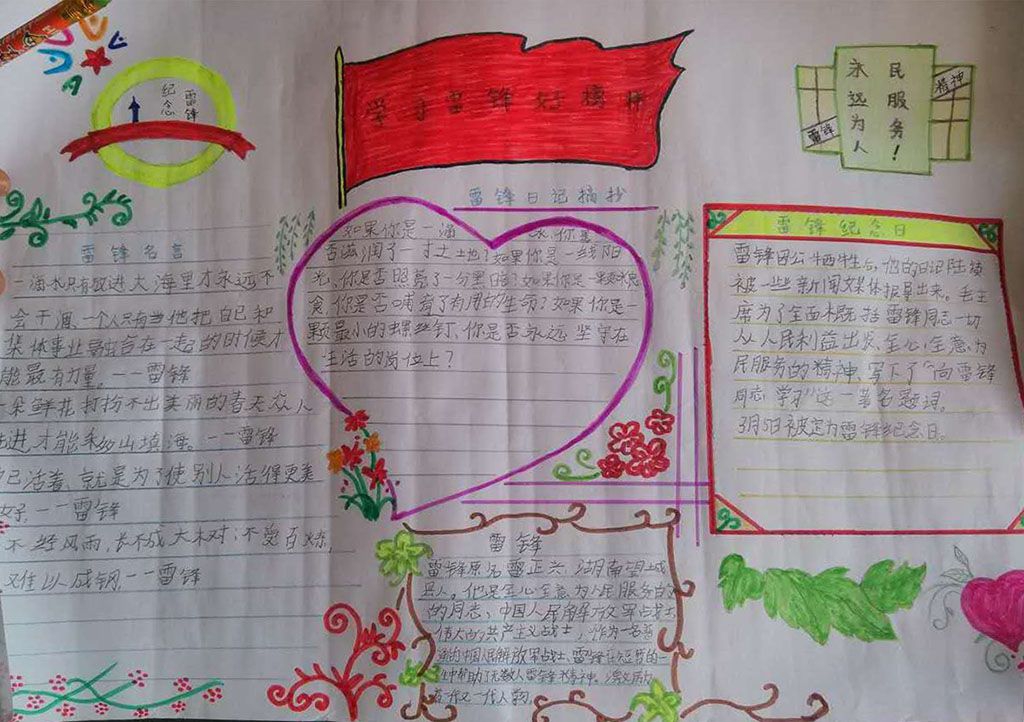 纪念
雷锋
学习雷锋好榜样
永远为人
民服务！
雷锋
精神
雷锋名言
一滴水只有放进大海里才永远不
会干涸、一个人只有当他把自己和
集体事业融合在一起的时候才
能最有力量。一一雷锋
一朵鲜花打扮不出美丽的春天众人
进才能移山填海。一一雷锋
自己活着、就是为了使别人活得更美
好。一一雷锋
不经风雨，长不成大树；不受百炼，
难以成钢。一一雷锋
雷锋日记摘抄
如果你是一滴水，你是
否滋润了一寸土地？如果你是一线阳
光、你是否照亮了一分黑暗？如果你是一颗粮
食，你是否哺育了有用的生命？如果你是一
颗最小的螺丝钉、你是否永远坚守在
生活的岗位上？
雷锋纪念日
雷锋因公牺牲后，他的日记陆续
被一些新闻媒体报导出来。毛主
席为了全面概括雷锋同志一切
从人民利益出发、全心全意为
民服务的精神、写下了“向雷锋
同志学习”这一著名题词。
3月5日被定为雷锋纪念日。
雷锋
雷锋原名雷正兴、湖南望城
县人。他是全心全意为人民服务
的同志、中国人民解放军战士
伟大的共产主义战士，作为一名普
通的中国人民解放军战士、雷锋在短暂的一
生中帮助了无数人雷锋精神、激励
着一代又一代人